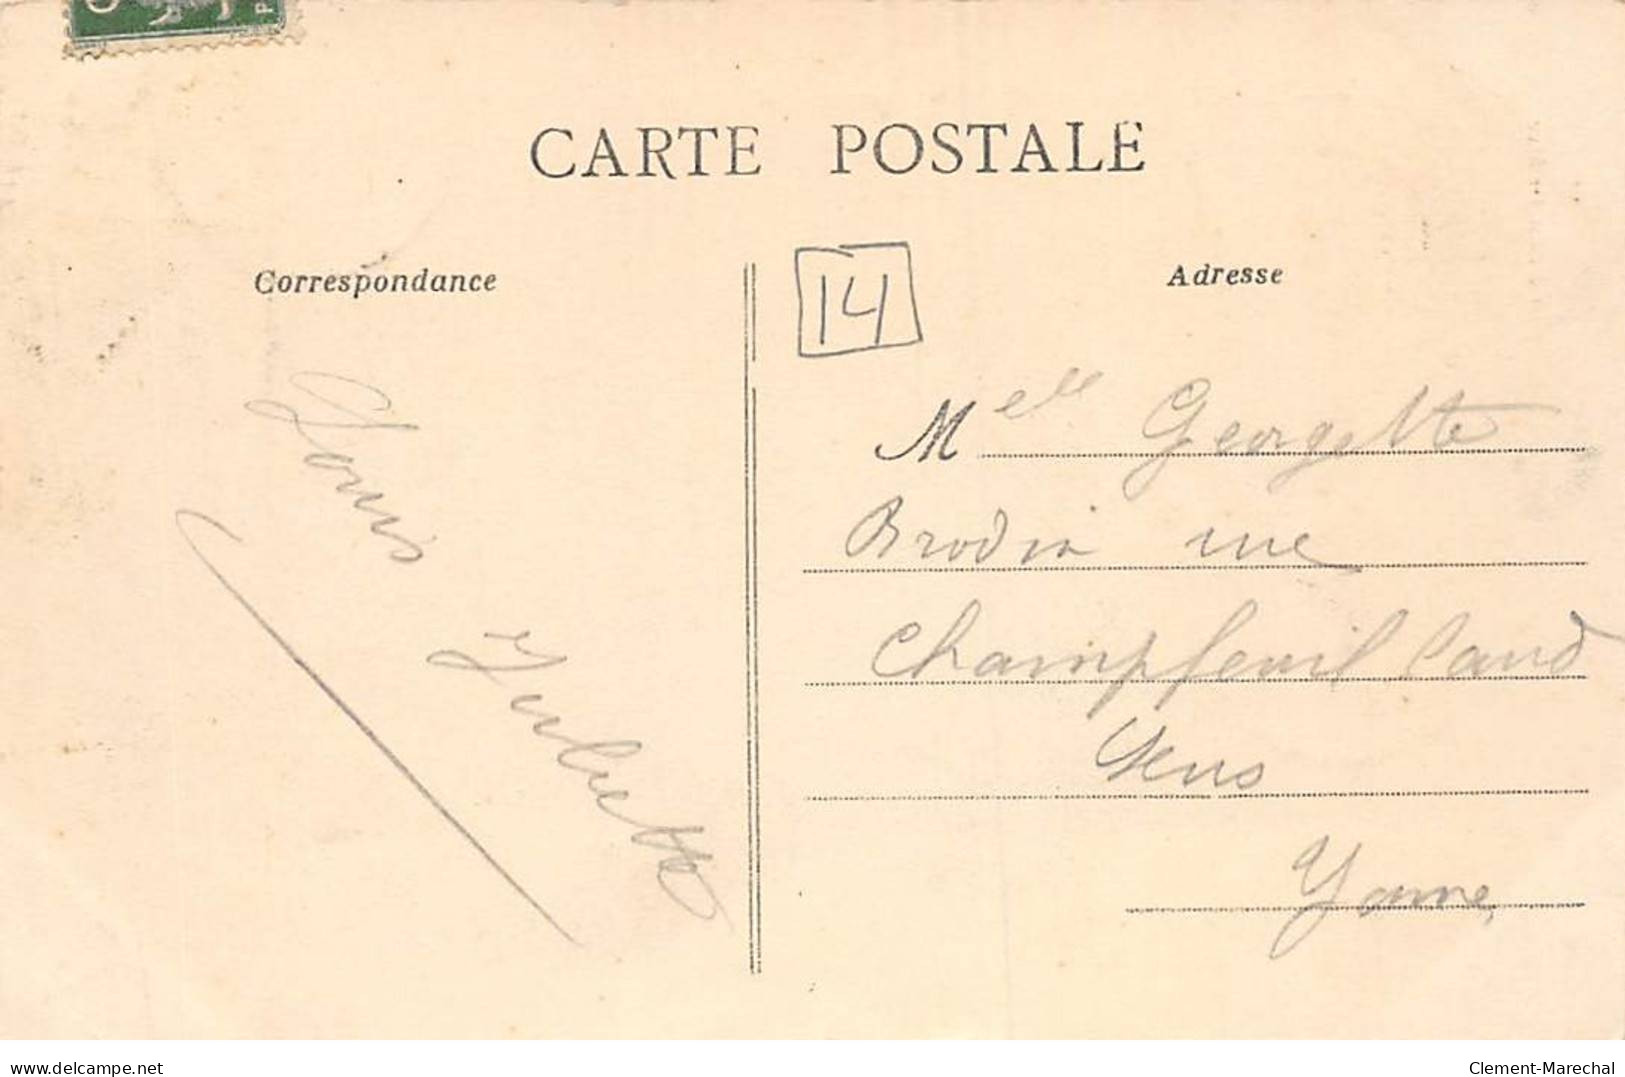 CARTE POSTALE
Correspondance
Adresse
14
Melle Georgette
Brodin rue
Champfeuillard
Sens
Yonne
Louis Juliette
delcampe.net
Clement-Marechal